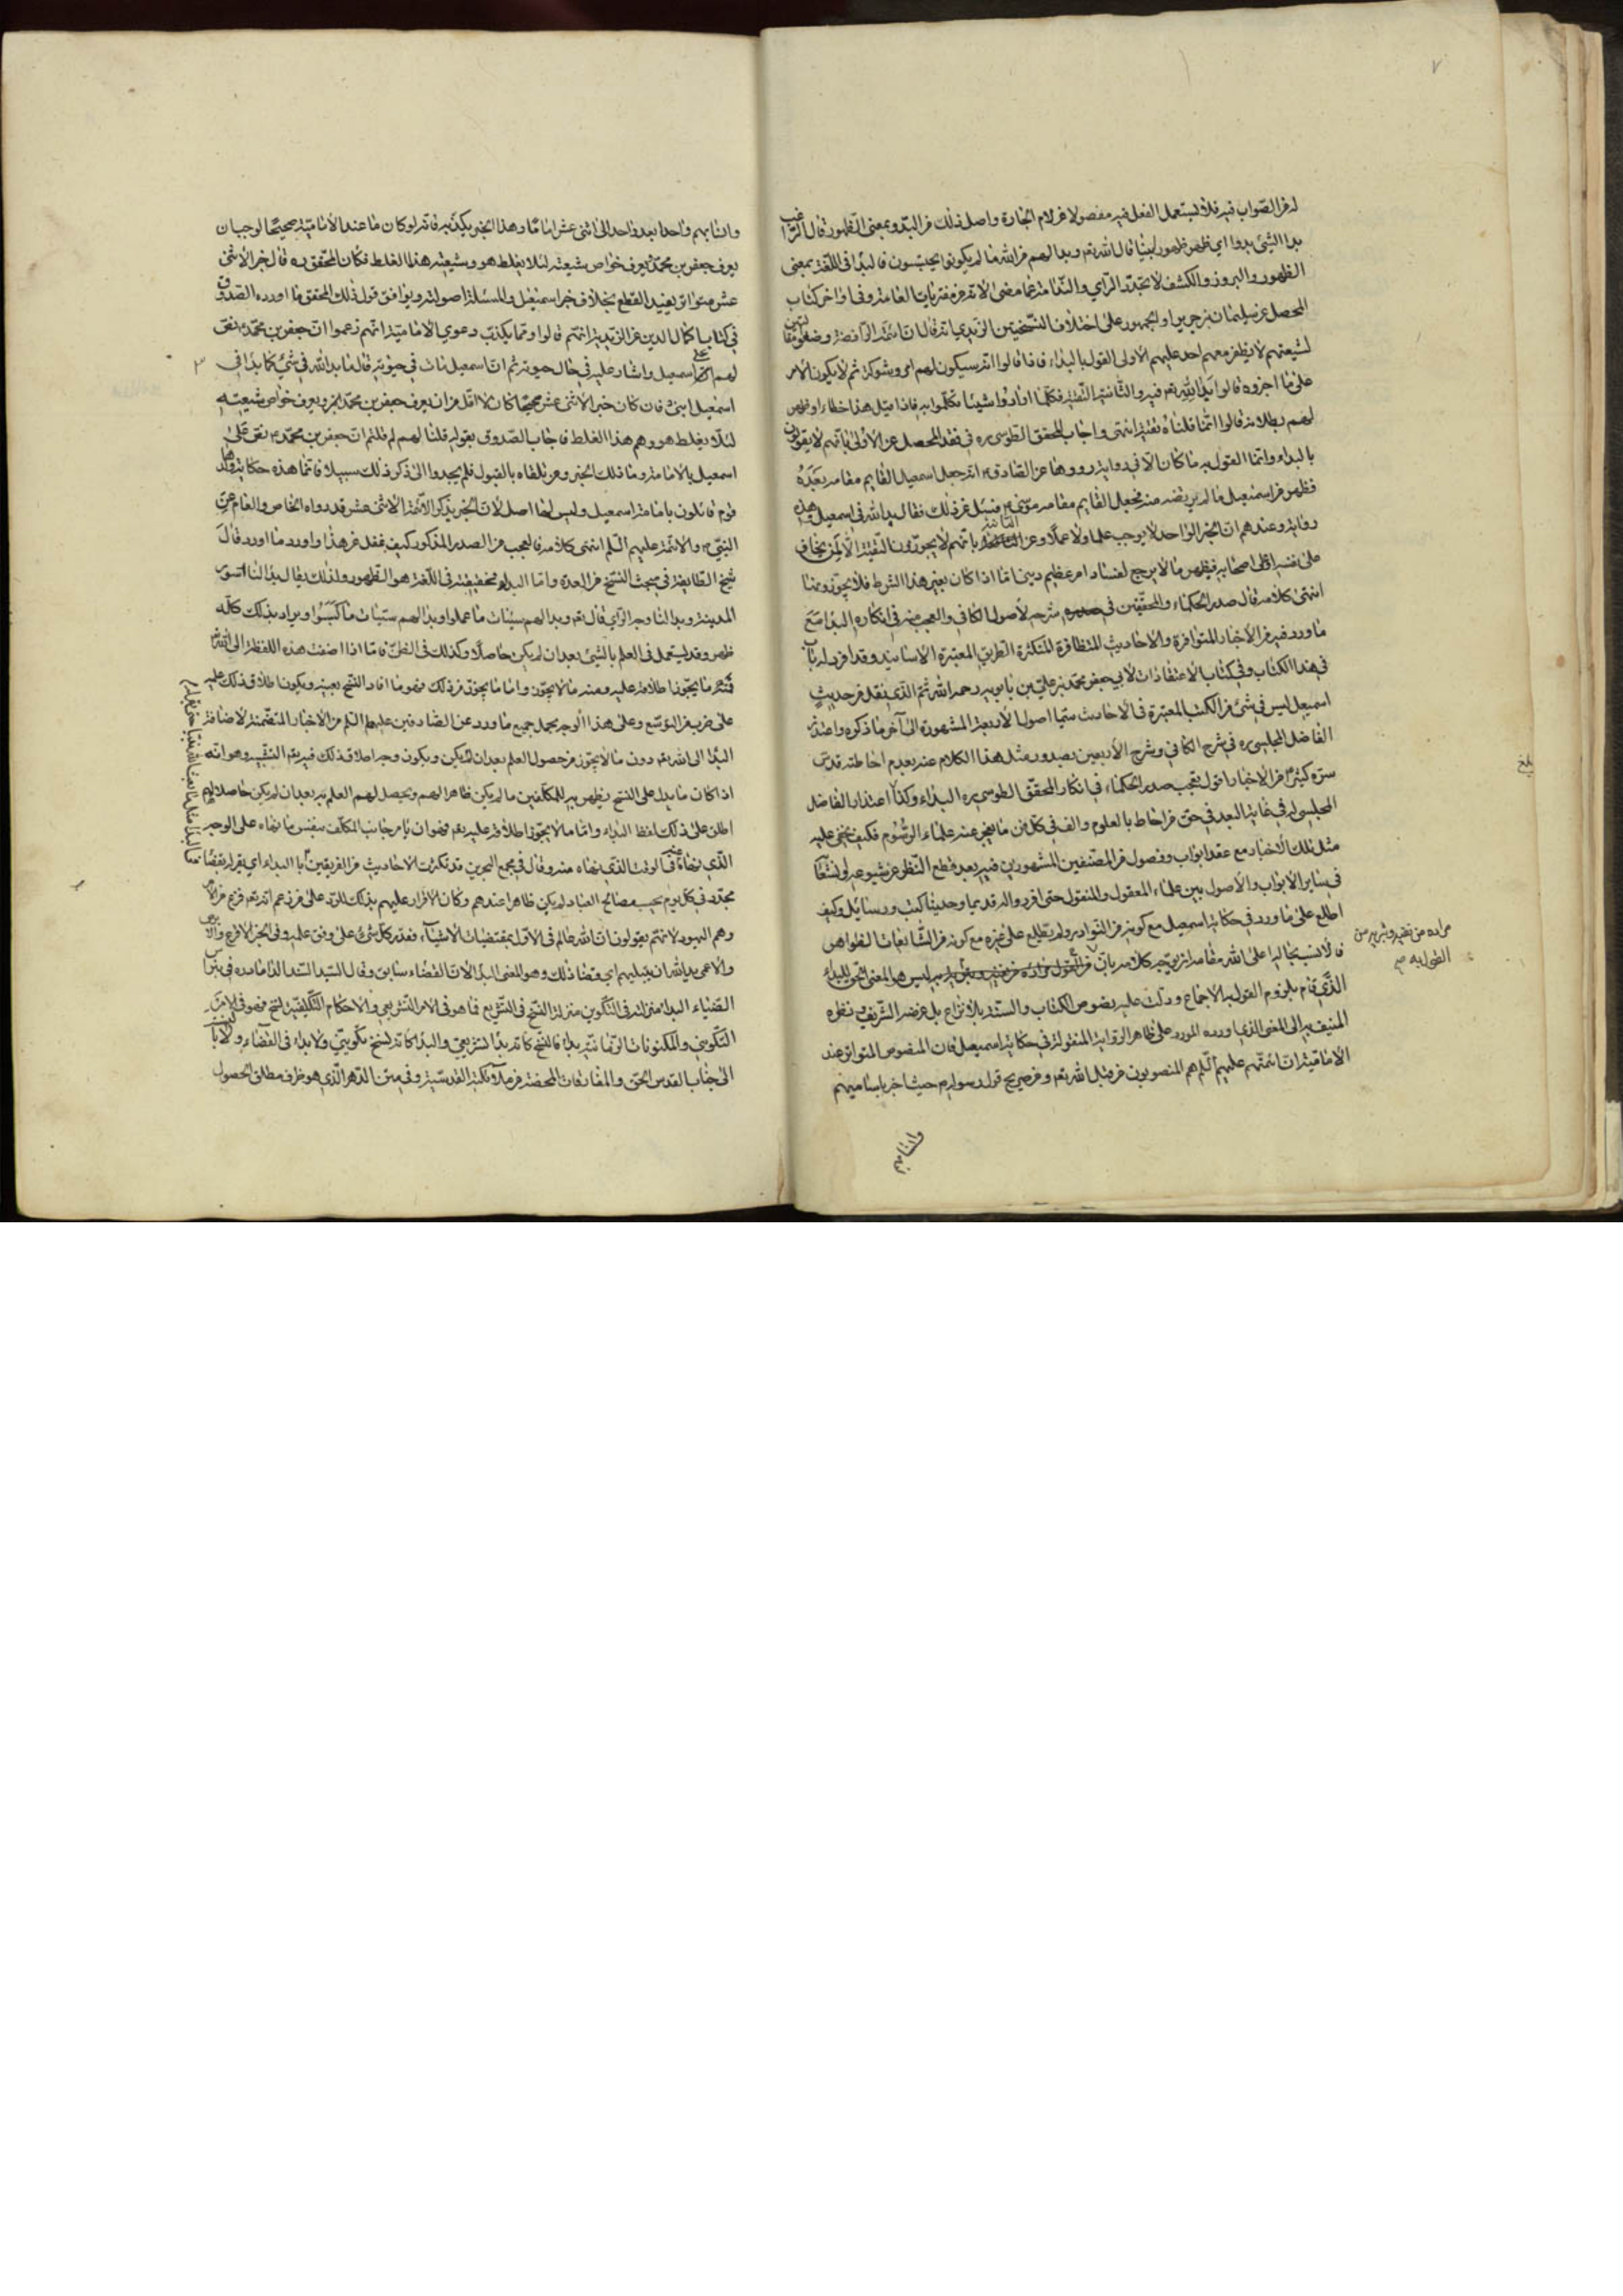 له من الصواب فيه فلا يستعمل الفعل فيه مفصولا عن لام الجارة واصل ذلك من البدو بمعنى الظهور قال الراغب
بدا الشيء بدوا اي ظهر ظهورا بينا قال الله تعه وبدا لهم من الله ما لم يكونوا يحتسبون فالبدا في اللغة بمعنى
الظهور والبروز والكشف لا تجدد الراي والندامة عما مضى الا انه من مفتريات العامة وفي اواخر كتاب
المحصل عن سليمان بن جرير او الجمهور على اختلاف النسختين الزيدي انه قال ان ائمة الرافضة وضعوا مقالتين
لشيعتهم لا يظفر معهم احد عليهم الاولى القول بالبداء فاذا قالوا انه سيكون لهم امر وشوكة ثم لا يكون الامر
على ما اخبروه قالوا بدا لله تعه فيه والثانية التقية فكلما ارادوا شيئا تكلموا به فاذا قيل هذا خطاء او ظهر
لهم بطلانه قالوا انما قلناه تقية انتهى واجاب المحقق الطوسي ره في نقد المحصل عن الاولى بانهم لا يقولون
بالبداء وانما القول به ما كان الا في رواية رووها عن الصادق ع انه جعل اسمعيل القايم مقامه بعده
فظهر من اسمعيل ما لم يرتضه منه فجعل القايم مقامه موسى ع فسئل عن ذلك فقال بدا لله في اسمعيل وهذه
رواية وعندهم ان الخبر الواحد لا يوجب علما ولا عملا وعن الثانية بانهم لا يجوزون التقية الا لمن يخاف
على نفسه او على اصحابه فيظهر ما لا يرجع لفساد امر عظيم ديني اما اذا كان بغير هذا الشرط فلا يجوزونها
انتهى كلامه قال صدر الحكماء والمحققين في شرحه لأصول الكافي والعجب منه في انكاره البدا مع
ما ورد فيه من الأخبار المتوافرة والاحاديث المتظافرة المتكثرة الطريق المعتبرة الاسانيد وقد افرد له باب
في هذا الكتاب وفي كتاب الاعتقادات لابي جعفر محمد بن علي بن بابويه رحمه الله ثم الذي نقل من حديث
اسمعيل ليس في شيء من الكتب المعتبرة في الأحاديث سيما اصولنا الأربعة المشهورة الى آخر ما ذكره واعتذر
الفاضل المجلسي ره في شرح الكافي وشرح الأربعين بصدور مثل هذا الكلام عنه بعدم احاطته قدس
سره كثيرا من الاخبار اقول تعجب صدر الحكماء في انكار المحقق الطوسي ره البداء وكذا اعتذار الفاضل
المجلسي له في غاية البعد في حق من احاط بالعلوم والف في كل فن ما يعجز عنه علماء الرسوم فكيف يخفى عليه
مثل تلك الأخبار مع عقد ابواب وفصول من المصنفين المشهورين فيه بعد قطع النظر عن شيوعه
في ساير الابواب والأصول بين علماء المعقول والمنقول حتى افردوا له قديما وحديثا كتب ورسائل وكيف
اطلع على ما ورد في حكاية اسمعيل مع كونه من النوادر ولم يطلع على غيره مع كونه من الشايعات الظواهر
فالأنسب بحاله اعلى الله مقامه ان يوجه كلامه بان ليس هو المعنى الحق للبداء
الذي قام بلزوم القول به الاجماع ودلت عليه نصوص الكتاب والسنة بلا نزاع بل غرضه الشريف ونظره
المنيف فيه الى المعنى الذي اورده المورد على ظاهر الرواية المنقولة في حكاية اسمعيل فان المنصوص المتواتر عند
الامامية ان ائمتهم عليهم السلم هم المنصوبون من قبل الله تعه ومن صريح قول رسوله ص حيث اخبر باساميهم
مراده من نفيه وتبريه من
القول به صح
وانسابهم
بلغ
وانسابهم واحدا بعد واحد الى اثنى عشر اماما وهذا الخبر يكذبه فانه لو كان ما عند الأمامية صحيحا لوجب ان
يعرف جعفر بن محمد ويعرف خواص شيعته لئلا يغلط هو وشيعته هذا الغلط فكان المحقق ره قال خبر الاثنى
عشر متواتر يفيد القطع بخلاف خبر اسمعيل والمسئلة اصولية ويوافق قول ذلك المحقق ما اورده الصدوق
في كتاب اكمال الدين عن الزيدية انهم قالوا ومما يكذب دعوي الامامية انهم زعموا ان جعفر بن محمد ع نص
لهم على اسمعيل واشار عليه في حال حيوته ثم ان اسمعيل مات في حيوته فقال ما بدا لله في شيء كما بدا في
اسمعيل ابني فان كان خبر الأثنى عشر صحيحا كان لا اقل من ان يعرف جعفر بن محمد الخبر ويعرف خواص شيعته
لئلا يغلط هو وهم هذا الغلط فاجاب الصدوق بقوله قلنا لهم لم قلتم ان جعفر بن محمد ع نص على
اسمعيل بالامامة وما ذلك الخبر ومن تلقاه بالقبول فلم يجدوا الى ذكر ذلك سبيلا فانما هذه حكاية ولدها
قوم قائلون بامامة اسمعيل وليس لها اصل لأن الخبر بذكر الأئمة الاثنى عشر قد رواه الخاص والعام عن
النبي ص والائمة عليهم السلم انتهى كلامه فالعجب من الصدر المذكور كيف غفل عن هذا واورد ما اورد قال
شيخ الطايفة في مبحث النسخ من العدة واما البداء فحقيقته في اللغة هو الظهور ولذلك يقال بدا لنا سور
المدينة وبدا لنا وجه الراي قال تعه وبدا لهم سيئات ما عملوا وبدا لهم سيئات ما كسبوا ويراد بذلك كله
ظهر وقد يستعمل في العلم بالشيء بعد ان لم يكن حاصلا وكذلك في الظن فاما اذا اضيفت هذه اللفظة الى الله تعه
فمنه ما يجوز اطلاقه عليه ومنه ما لا يجوز واما ما يجوز من ذلك فهو ما افاد النسخ بعينه ويكون اطلاق ذلك عليه
على ضرب من التوسع وعلى هذا الوجه يحمل جميع ما ورد عن الصادقين عليهما السلم من الأخبار المتضمنة لأضافة
البدا الى الله تعه دون ما لا يجوز من حصول العلم بعد ان لم يكن ويكون وجه اطلاق ذلك فيه تعه التشبيه وهو انه
اذا كان ما يدل على النسخ يظهر به للمكلفين ما لم يكن ظاهرا لهم ويحصل لهم العلم به بعد ان لم يكن حاصلا لهم
اطلق على ذلك لفظ البداء واما ما لا يجوز اطلاقه عليه تعه فهو ان يامر جانب المكلف بنفس ما نهاه على الوجه
الذي نهاه في الوقت الذي نهاه عنه وقال في مجمع البحرين قد تكثرت الأحاديث من الفريقين بالبداء اي يقر له بقضاء
مجدد في كل يوم بحسب مصالح العباد لم يكن ظاهرا عندهم وكان الأقرار عليهم بذلك للرد على من زعم انه تعه فرغ من الأمر
وهم اليهود لانهم يقولون ان الله عالم في الأول بمقتضيات الأشياء فقدر كل شيء على وفق علمه وفي الخبر الاقرع والابرص
والأعمى بدا لله ان يبتليهم اي قضا ذلك وهو المعنى البدا لأن القضاء سابق وقال السيد السند الداماد ره في نبراس
الضياء البداء منزلته في التكوين منزلة النسخ في التشريع فما هو في الامر التشريعي والأحكام التكليفية نسخ فهو في الأمر
التكويني والمكنونات الزمانية بداء فالنسخ كانه بداء تشريعي والبداء كانه نسخ تكويني ولا بداء في القضاء ولا بالنسبة
الى جناب القدس الحق والمفارقات المحضة من ملائكته القدسية وفي متن الدهر الذي هو ظرف مطلق الحصول